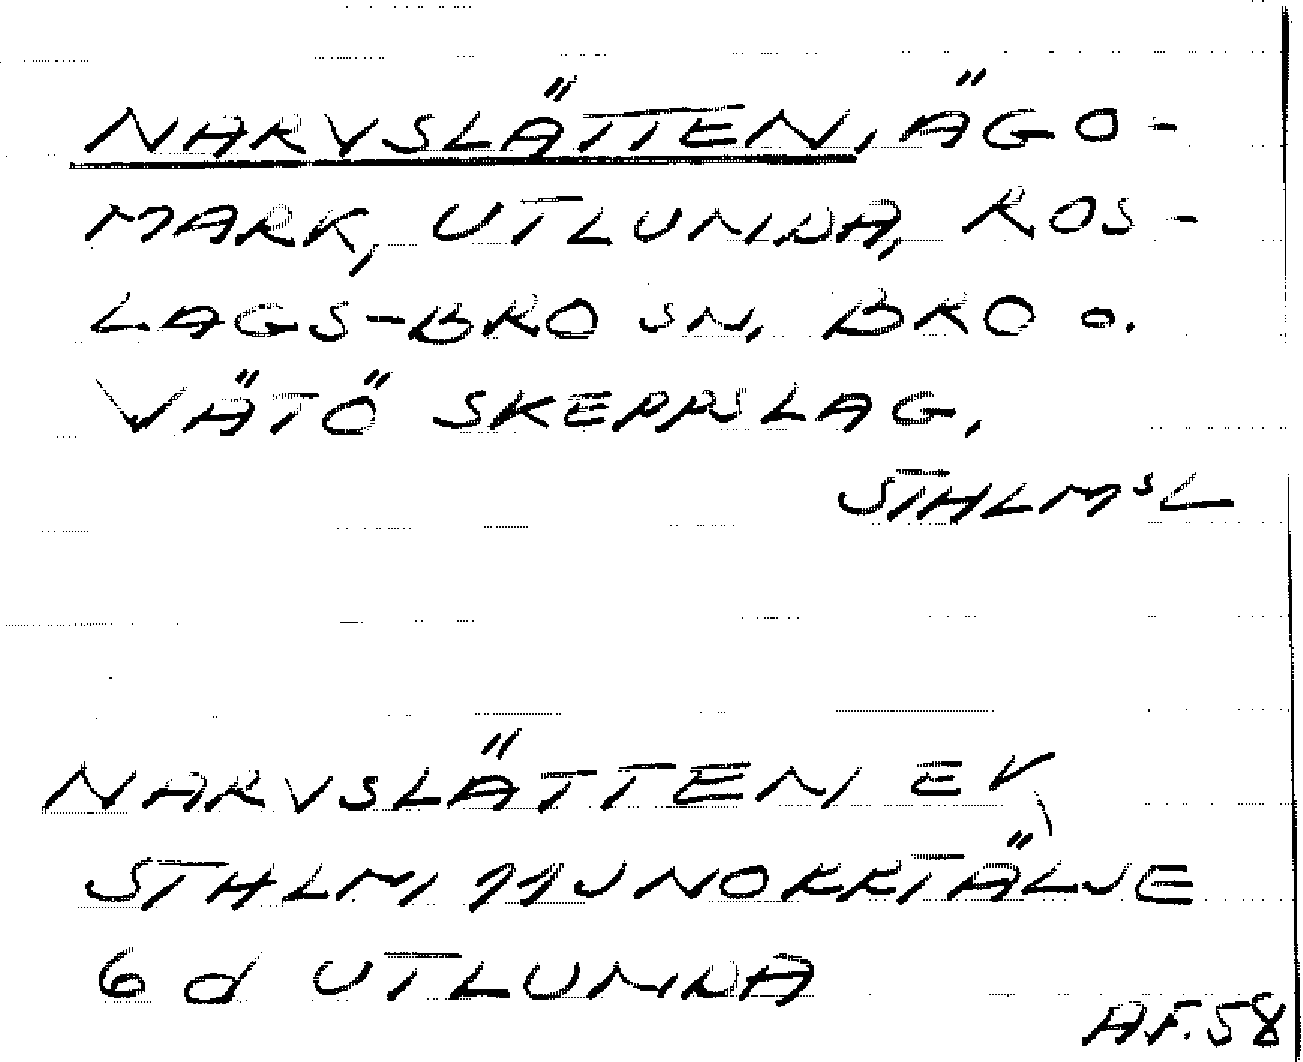 NARVSLÄTTEN, ÄGO-
MARK, UTLUNDA, ROS-
LAGS-BRO SN, BRO o.
VÄTÖ SKEPPSLAG,
STHLMˢ L
NARVSLÄTTEN EK,
STHLM 11J NORRTÄLJE
6 d UTLUNDA
A.F. 58